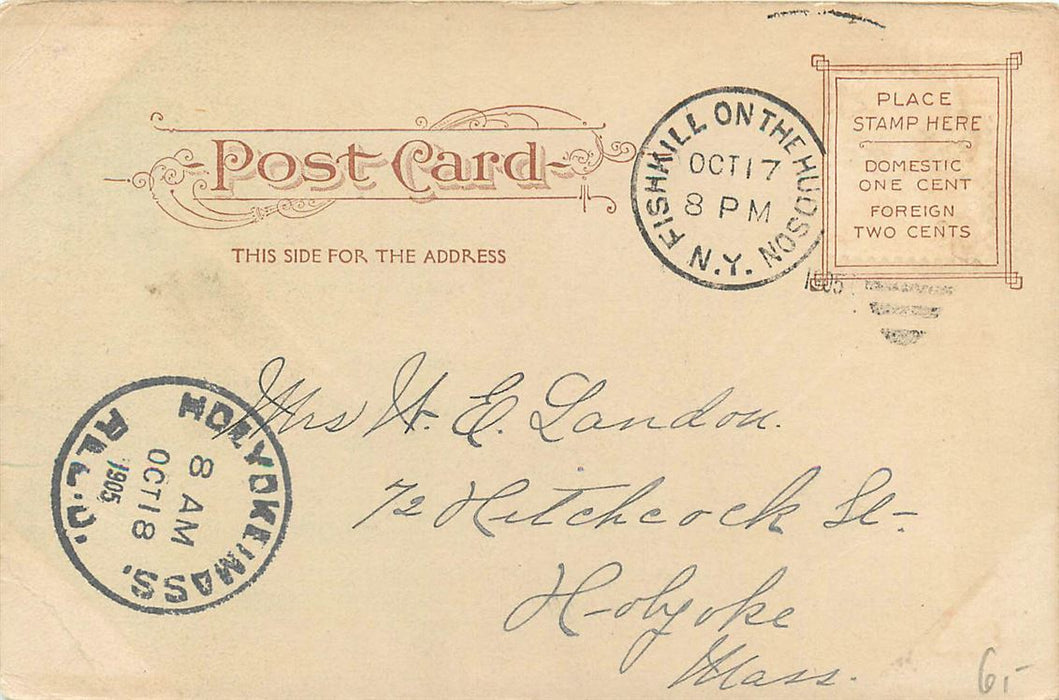 Post Card
THIS SIDE FOR THE ADDRESS
FISHKILL ON THE HUDSON N.Y.
OCT 17
8 PM
1905
PLACE
STAMP HERE
DOMESTIC
ONE CENT
FOREIGN
TWO CENTS
HOLYOKE, MASS.
8 AM
OCT 18
1905
REC'D.
Mrs W. E. Landon.
72 Hitchcock St-
Holyoke
Mass.
6,-